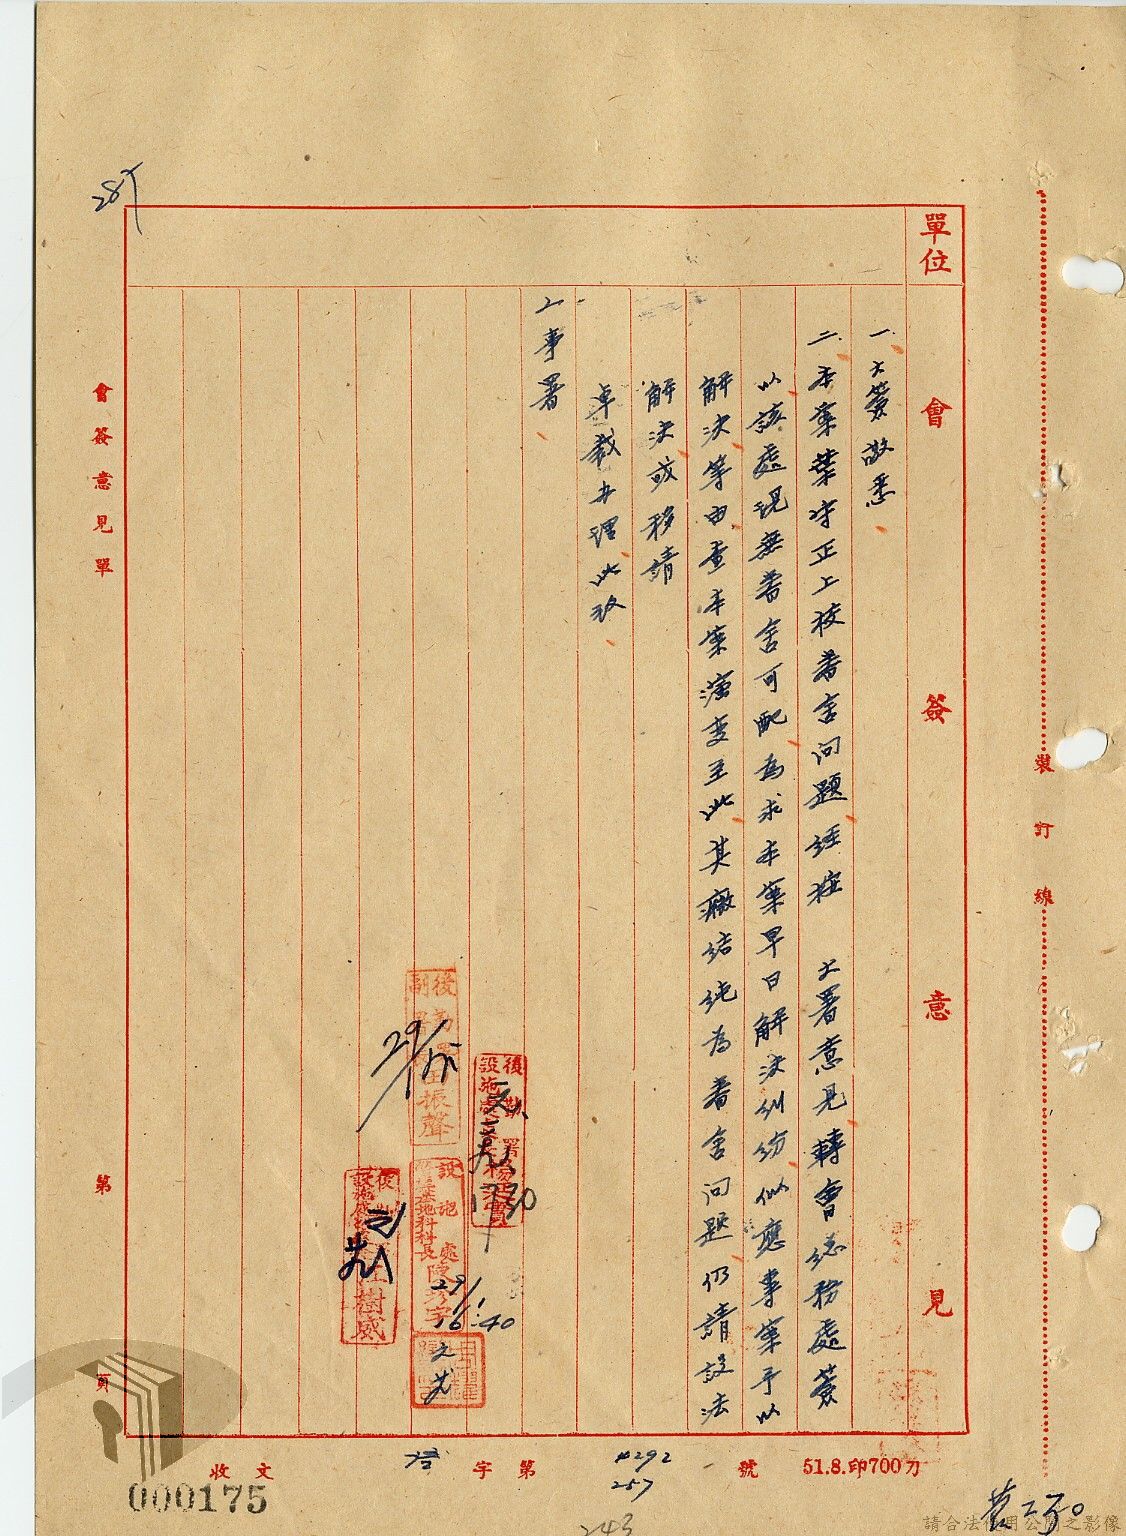 單位
會簽意見
一、大簽敬悉
二、本案葉守正上校眷舍問題經准 大署意見轉會總務處簽
以該處現無眷舍可配為求本案早日解決糾紛似應專案予以
解決等由查本案演變至此其癥結純為眷舍問題仍請設法
解決或移請
卓裁辦理此致
人事署
後勤署
副署長
振聲
29/1
後勤署
設施處
1730
設施處
基地科科長陳
29/1
16:40
後勤
設施處
汪樹威
會簽意見單
第 頁
裝訂線
收文 字第 號
4292
257
51.8.印700刀
000175
243
請合法使用公開之影像